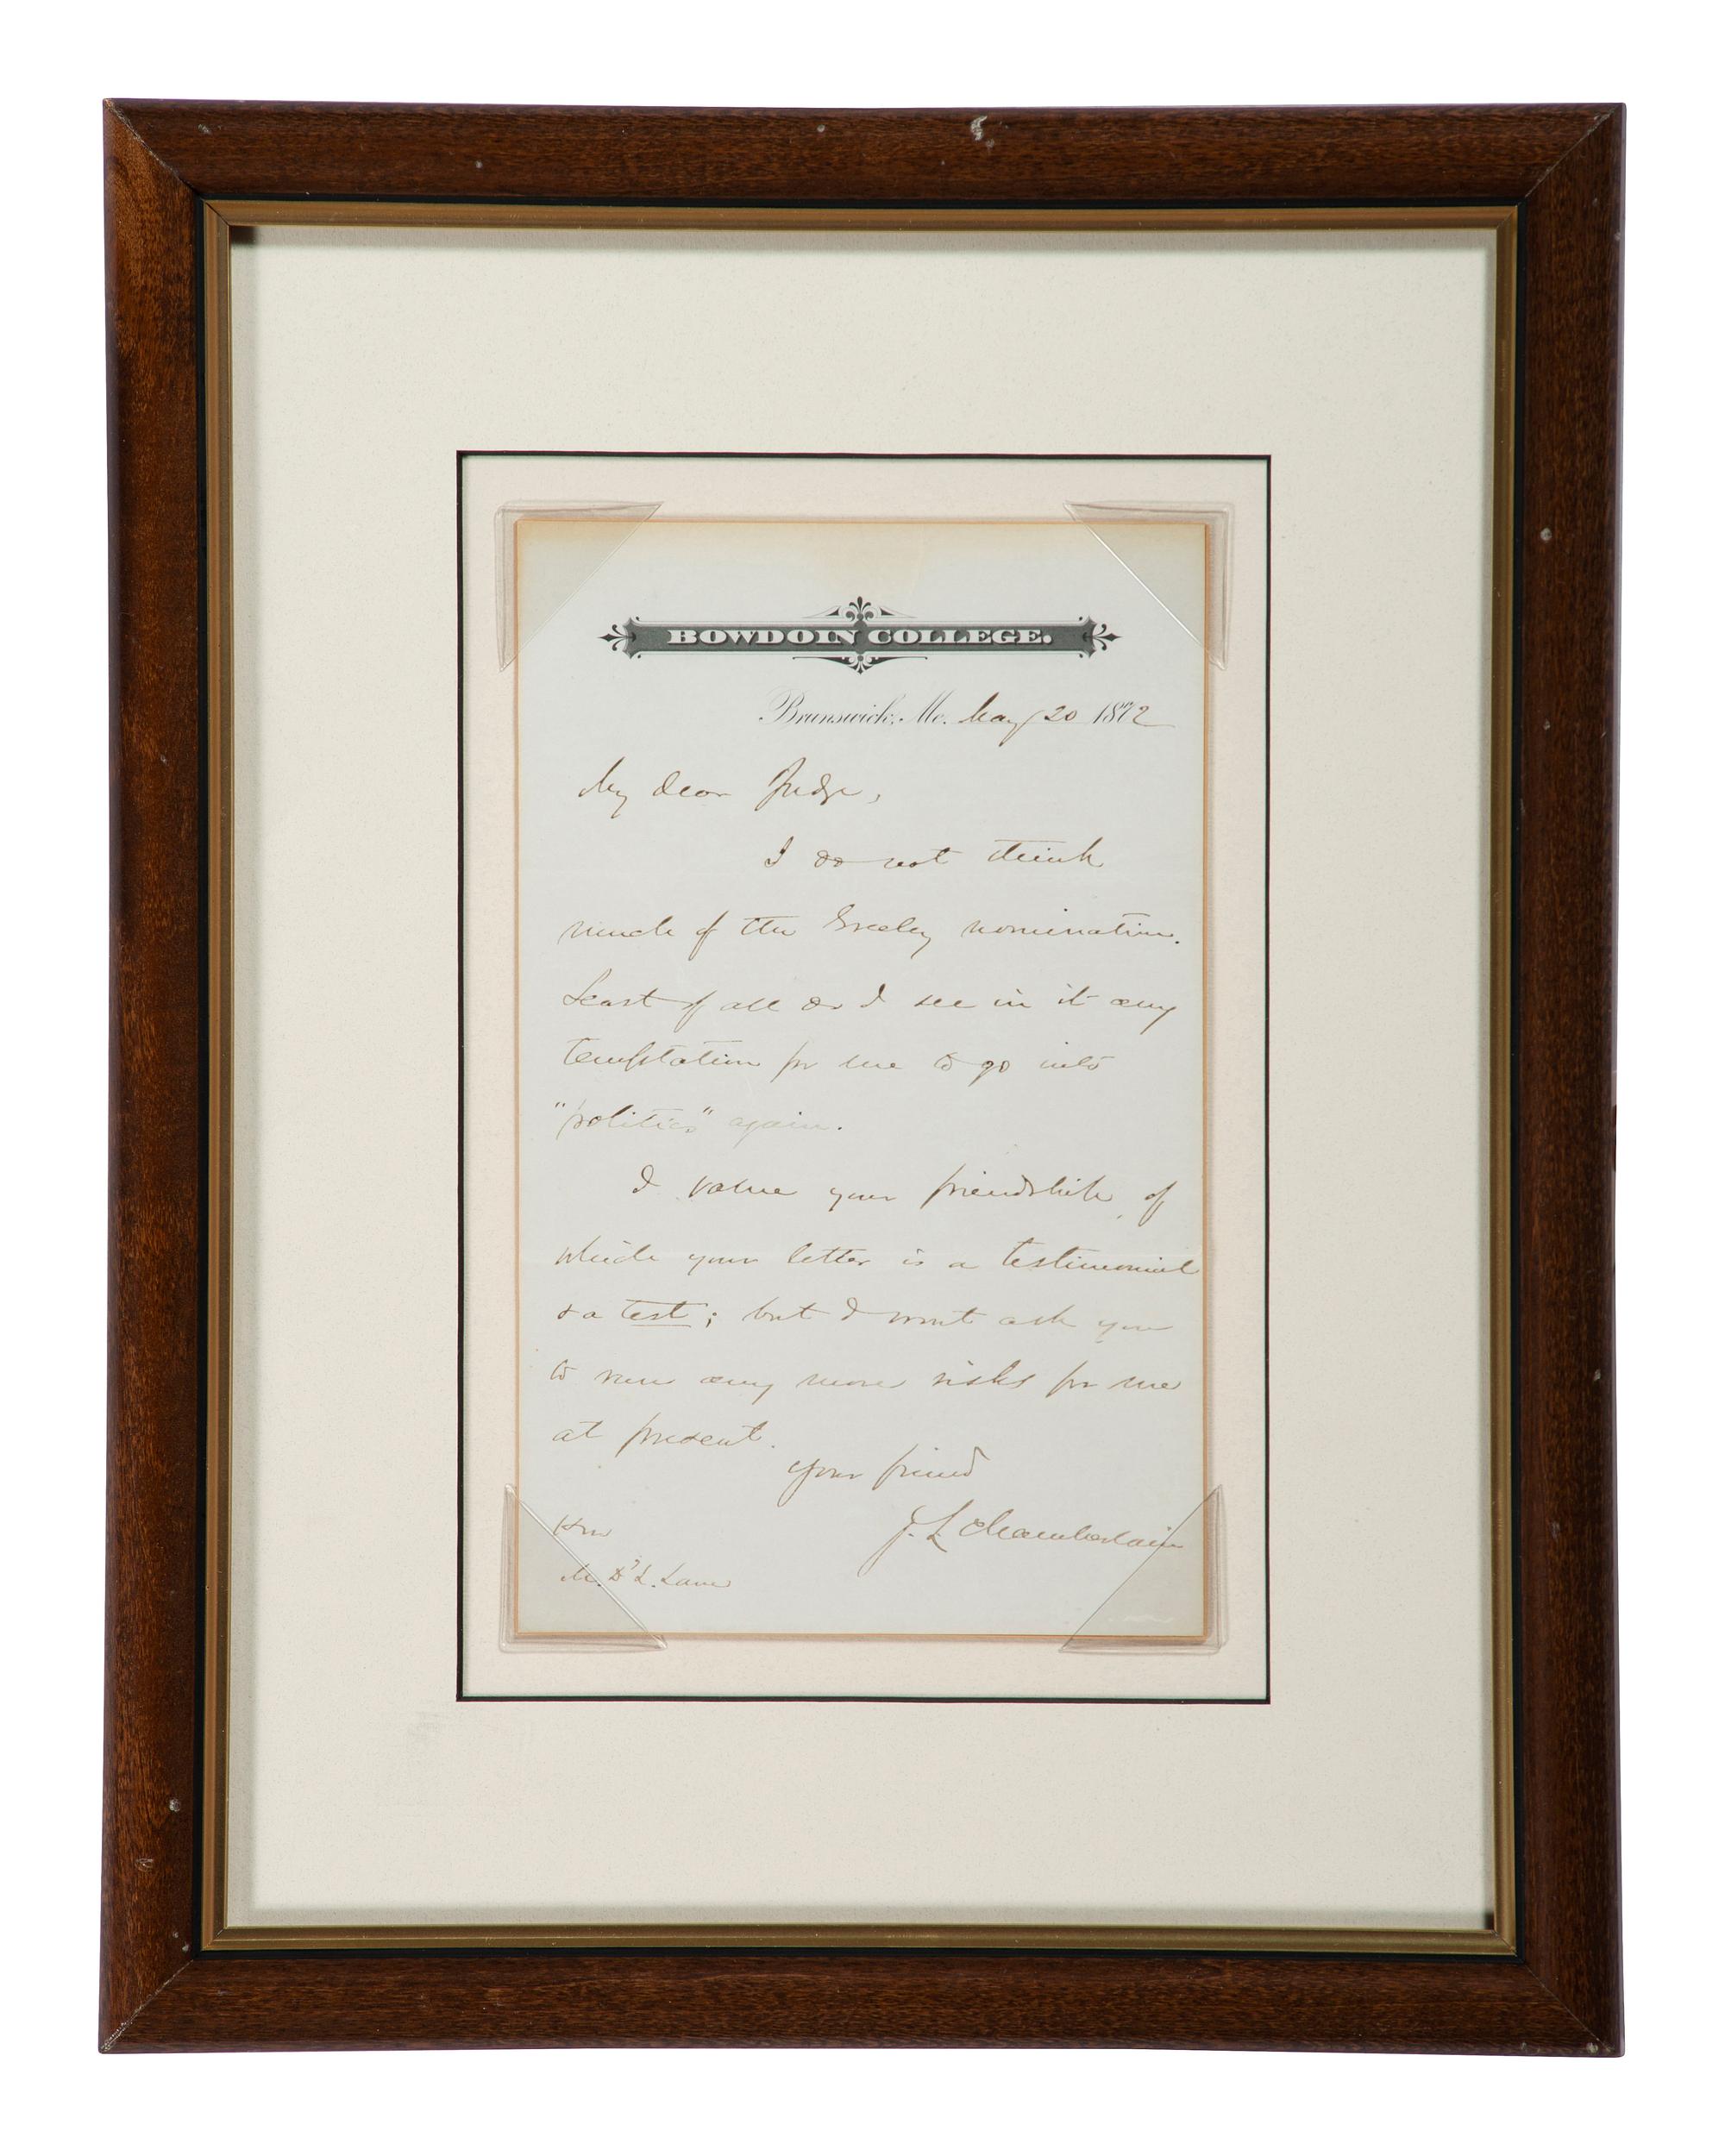 BOWDOIN COLLEGE.
Brunswick, Me. May 20 1872
My dear Judge,
I do not think
much of the Greeley nomination.
Least of all do I see in it any
temptation for me to go into
"politics" again.
I value your friendship, of
which your letter is a testimonial
& a test; but I wont ask you
to run any more risks for me
at present.
Your friend
J. L. Chamberlain
Hon
M. D. L. Lane